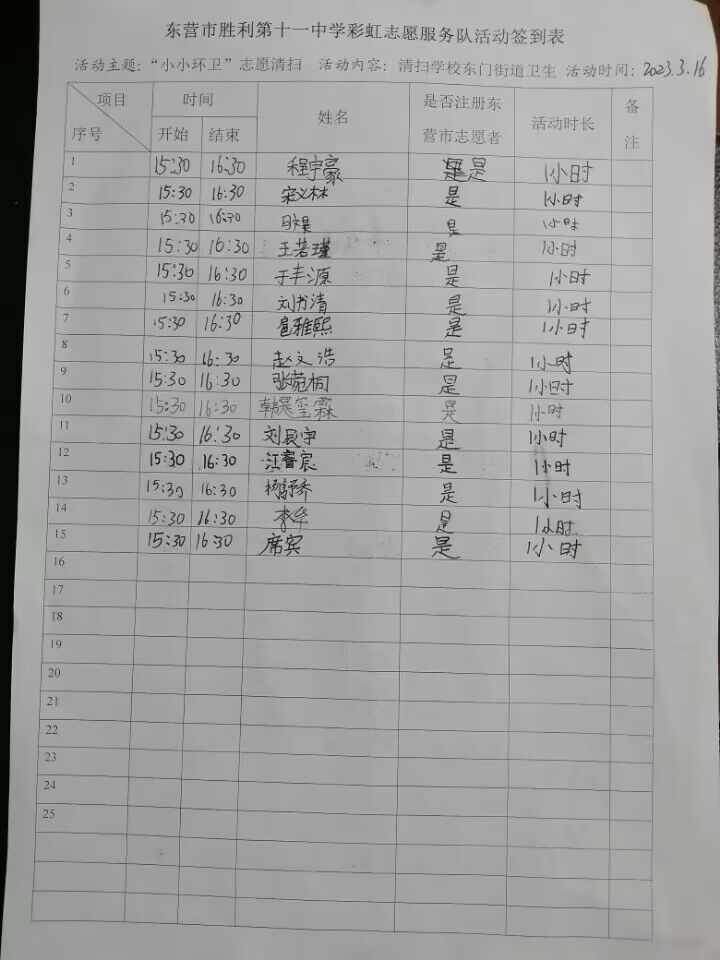 东营市胜利第十一中学彩虹志愿服务队活动签到表
活动主题:“小小环卫”志愿清扫 活动内容: 清扫学校东门街道卫生 活动时间: 2023.3.16
项目 序号 时间 开始 结束 姓名 是否注册东营市志愿者 活动时长 备注
1 15:30 16:30 程宇豪 是是 1小时
2 15:30 16:30 宋义林 是 1小时
3 15:30 16:30 是 1小时
4 15:30 16:30 王若瑾 是 1小时
5 15:30 16:30 于丰源 是 1小时
6 15:30 16:30 刘书清 是 1小时
7 15:30 16:30 扈雅熙 是 1小时
8 15:30 16:30 赵文浩 是 1小时
9 15:30 16:30 张菀桐 是 1小时
10 15:30 16:30 是 1小时
11 15:30 16:30 刘宸宇 是 1小时
12 15:30 16:30 江睿宸 是 1小时
13 15:30 16:30 是 1小时
14 15:30 16:30 李华 是 1小时
15 15:30 16:30 席宾 是 1小时
16
17
18
19
20
21
22
23
24
25